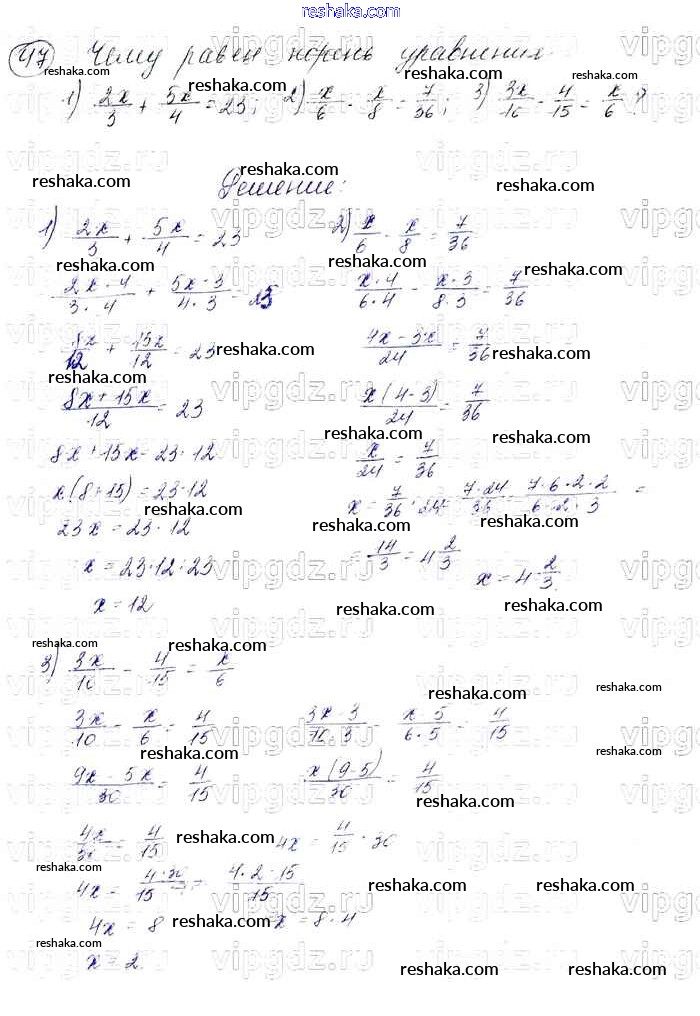 reshaka.com
47 Чему равен корень уравнения:
1) 2x/3 + 5x/4 = 23; 2) x/6 - x/8 = 7/36; 3) 3x/10 - 4/15 = x/6 ?
Решение:
1) 2x/3 + 5x/4 = 23
2x·4/3·4 + 5x·3/4·3 = 23
8x/12 + 15x/12 = 23
8x+15x/12 = 23
8x+15x=23·12
x(8+15)=23·12
23x = 23·12
x = 23·12:23
x = 12
2) x/6 - x/8 = 7/36
x·4/6·4 - x·3/8·3 = 7/36
4x-3x/24 = 7/36
x(4-3)/24 = 7/36
x/24 = 7/36
x = 7/36 · 24 = 7·24/36 = 7·6·2·2/6·2·3 =
= 14/3 = 4 2/3
x = 4 2/3.
3) 3x/10 - 4/15 = x/6
3x/10 - x/6 = 4/15
3x·3/10·3 - x·5/6·5 = 4/15
9x-5x/30 = 4/15
x(9-5)/30 = 4/15
4x/30 = 4/15
4x = 4/15 · 30
4x = 4·30/15 = 4·2·15/15
4x = 8
x = 8:4
x = 2.
vipgdz.ru